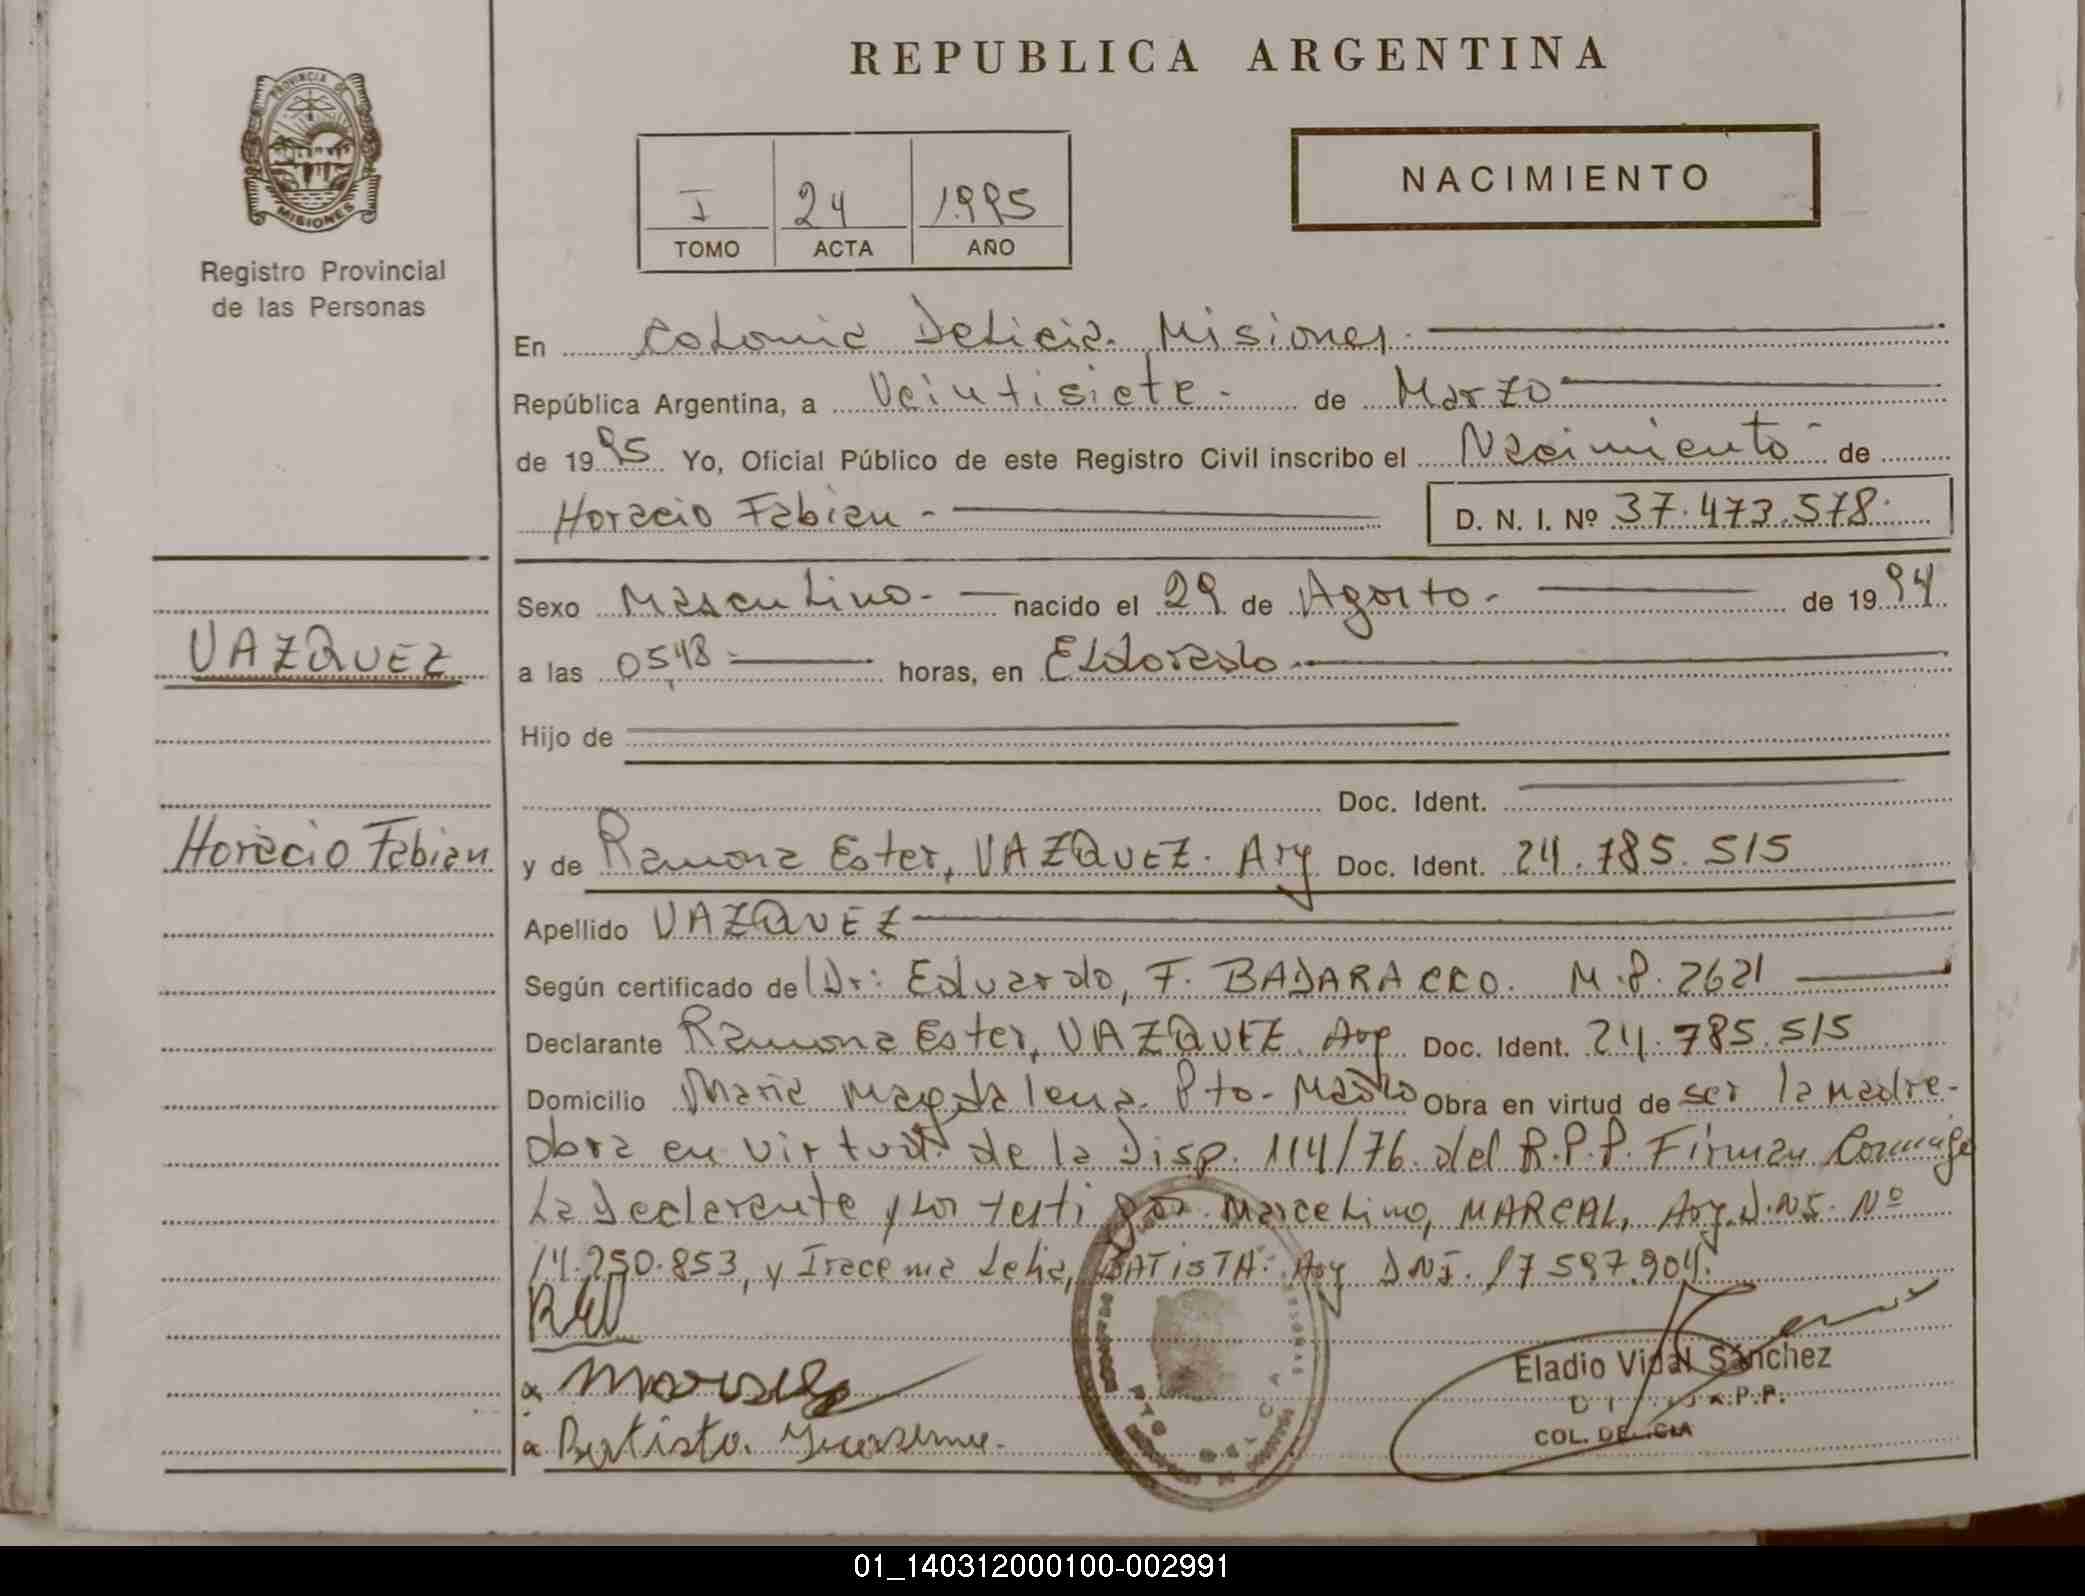 REPUBLICA ARGENTINA
PROVINCIA DE
MISIONES
Registro Provincial
de las Personas
I 24 1995
TOMO ACTA AÑO
NACIMIENTO
En Colonia Delicia. Misiones.
República Argentina, a Veintisiete. de Marzo
de 1995 Yo, Oficial Público de este Registro Civil inscribo el Nacimiento de
Horacio Fabian - D. N. I. Nº 37.473.578.
Sexo Masculino. nacido el 29 de Agosto. de 1994
VAZQUEZ
a las 05,48 horas, en Eldorado
Hijo de
Doc. Ident.
Horacio Fabian
y de Ramona Ester, VAZQUEZ. Arg Doc. Ident. 24.785.515
Apellido VAZQUEZ
Según certificado de Dr: Eduardo, F. BADARACCO. M.P. 2621
Declarante Ramona Ester, VAZQUEZ. Arg Doc. Ident. 24.785.515
Domicilio Maria Magdalena. Pto- Mado Obra en virtud de ser la madre-
obra en virtud de la Disp. 114/76. del R.P.P. Firman Conmigo
La Declarante y los testigos. Marcelino, MARCAL, Arg. D.NI. Nº
14.250.853, y Iracema Lelia, BATISTA. Arg DNI. 17 597.904.
REV
Batista. Iracema.
Eladio Vidal Sánchez
R.P.P.
COL. DELICIA
01_140312000100-002991